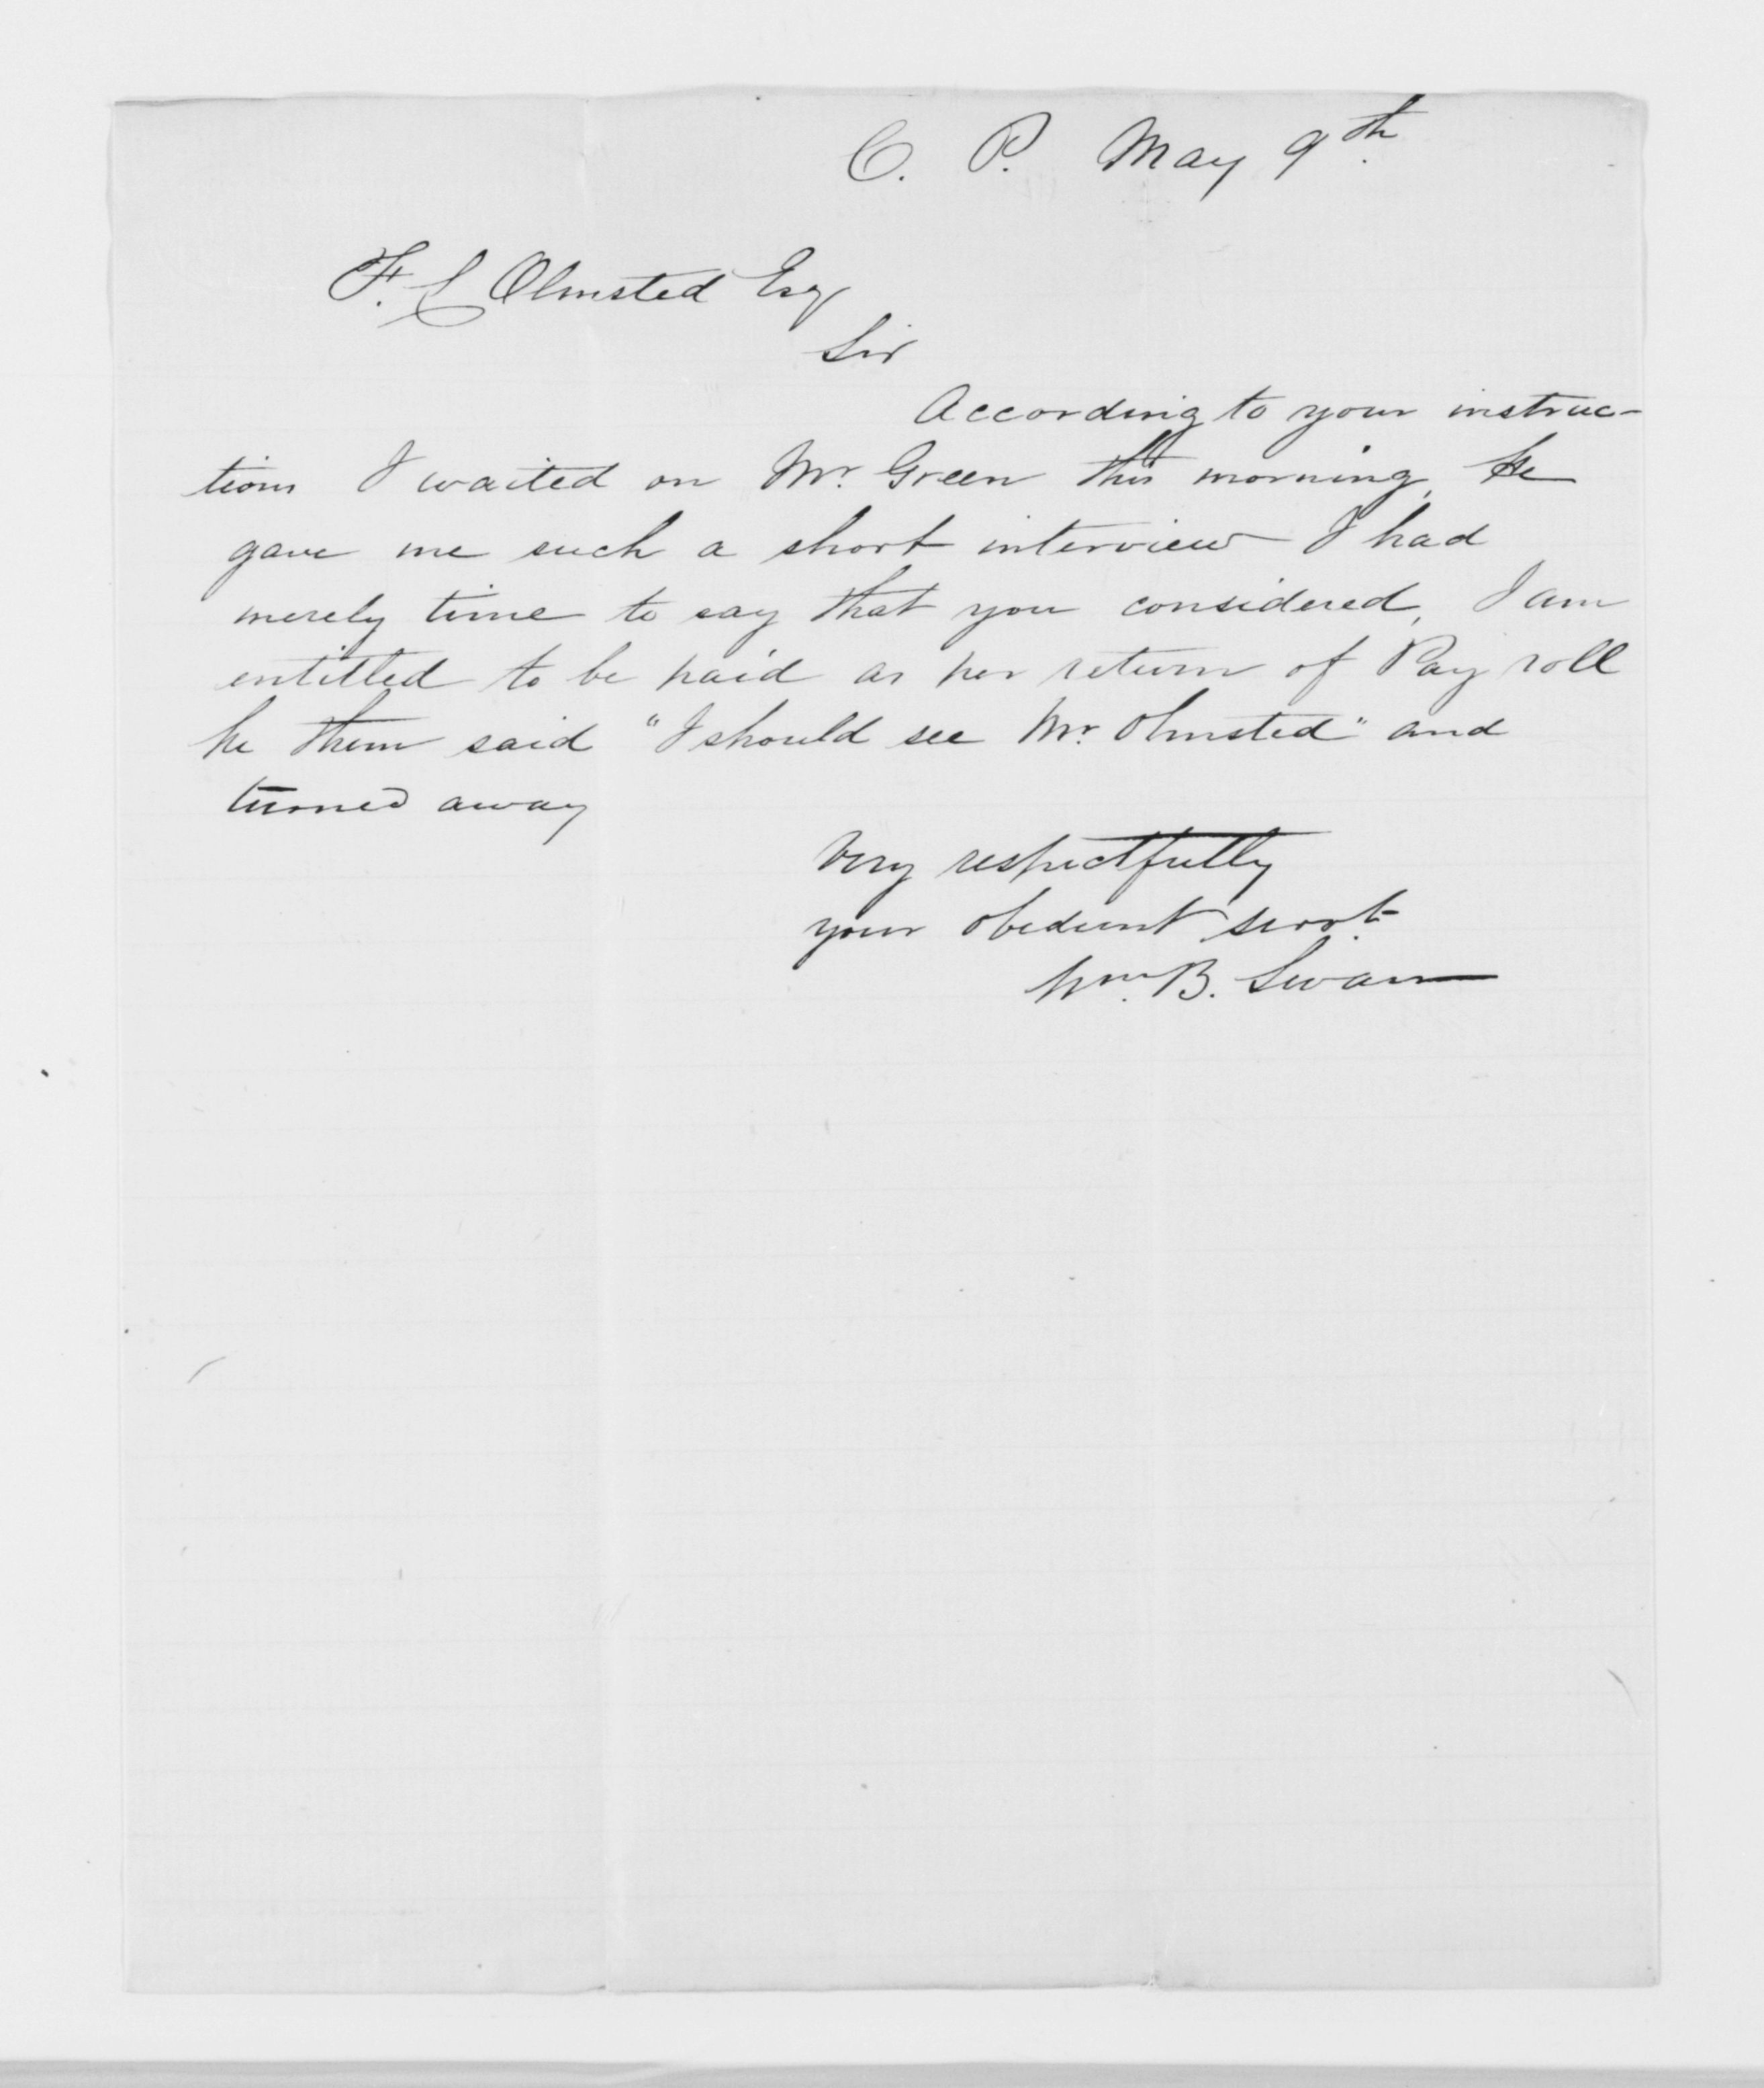 C. P. May 9th
F. L Olmsted Esq
Sir
According to your instruc-
tions I waited on Mr. Green this morning, he
gave me such a short interview I had
merely time to say that you considered, I am
entitled to be paid as per return of Pay roll
he then said "I should see Mr. Olmsted" and
turned away
Very respectfully
your obedient servt.
Wm. B. Swan